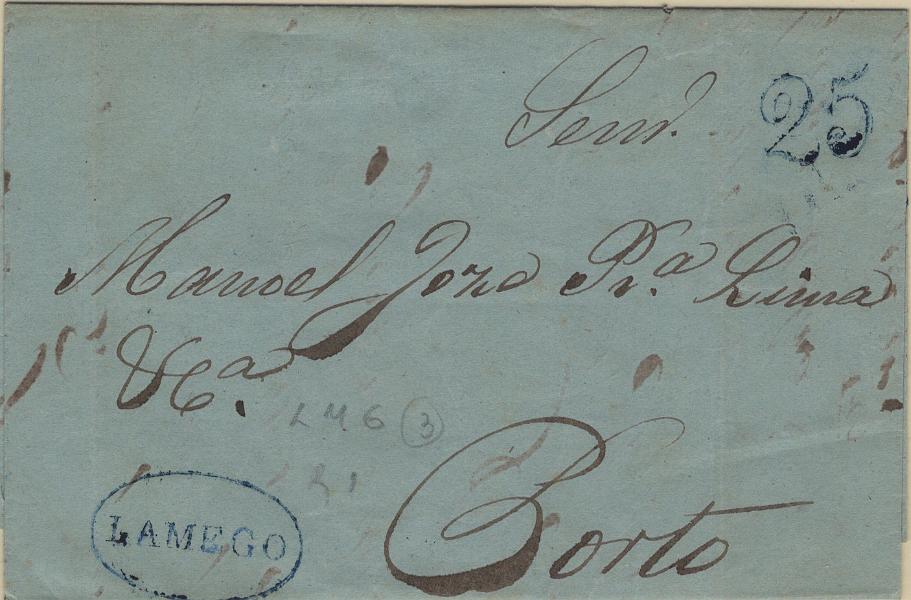 Senr. 25
Manoel Joze Pra. Lima
&Ca.
LM6 3
Porto
LAMEGO